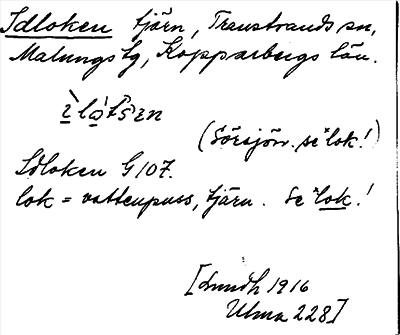 Idloken tjärn, Transtrands sn,
Malungs tg, Kopparbergs län.
ìlo̱t̀sɛn
(Sörsjön. se "lok!)
Idloken G 107.
lok = vattenpuss, tjärn. Se "lok!
[Lundh 1916
Ulma 228]